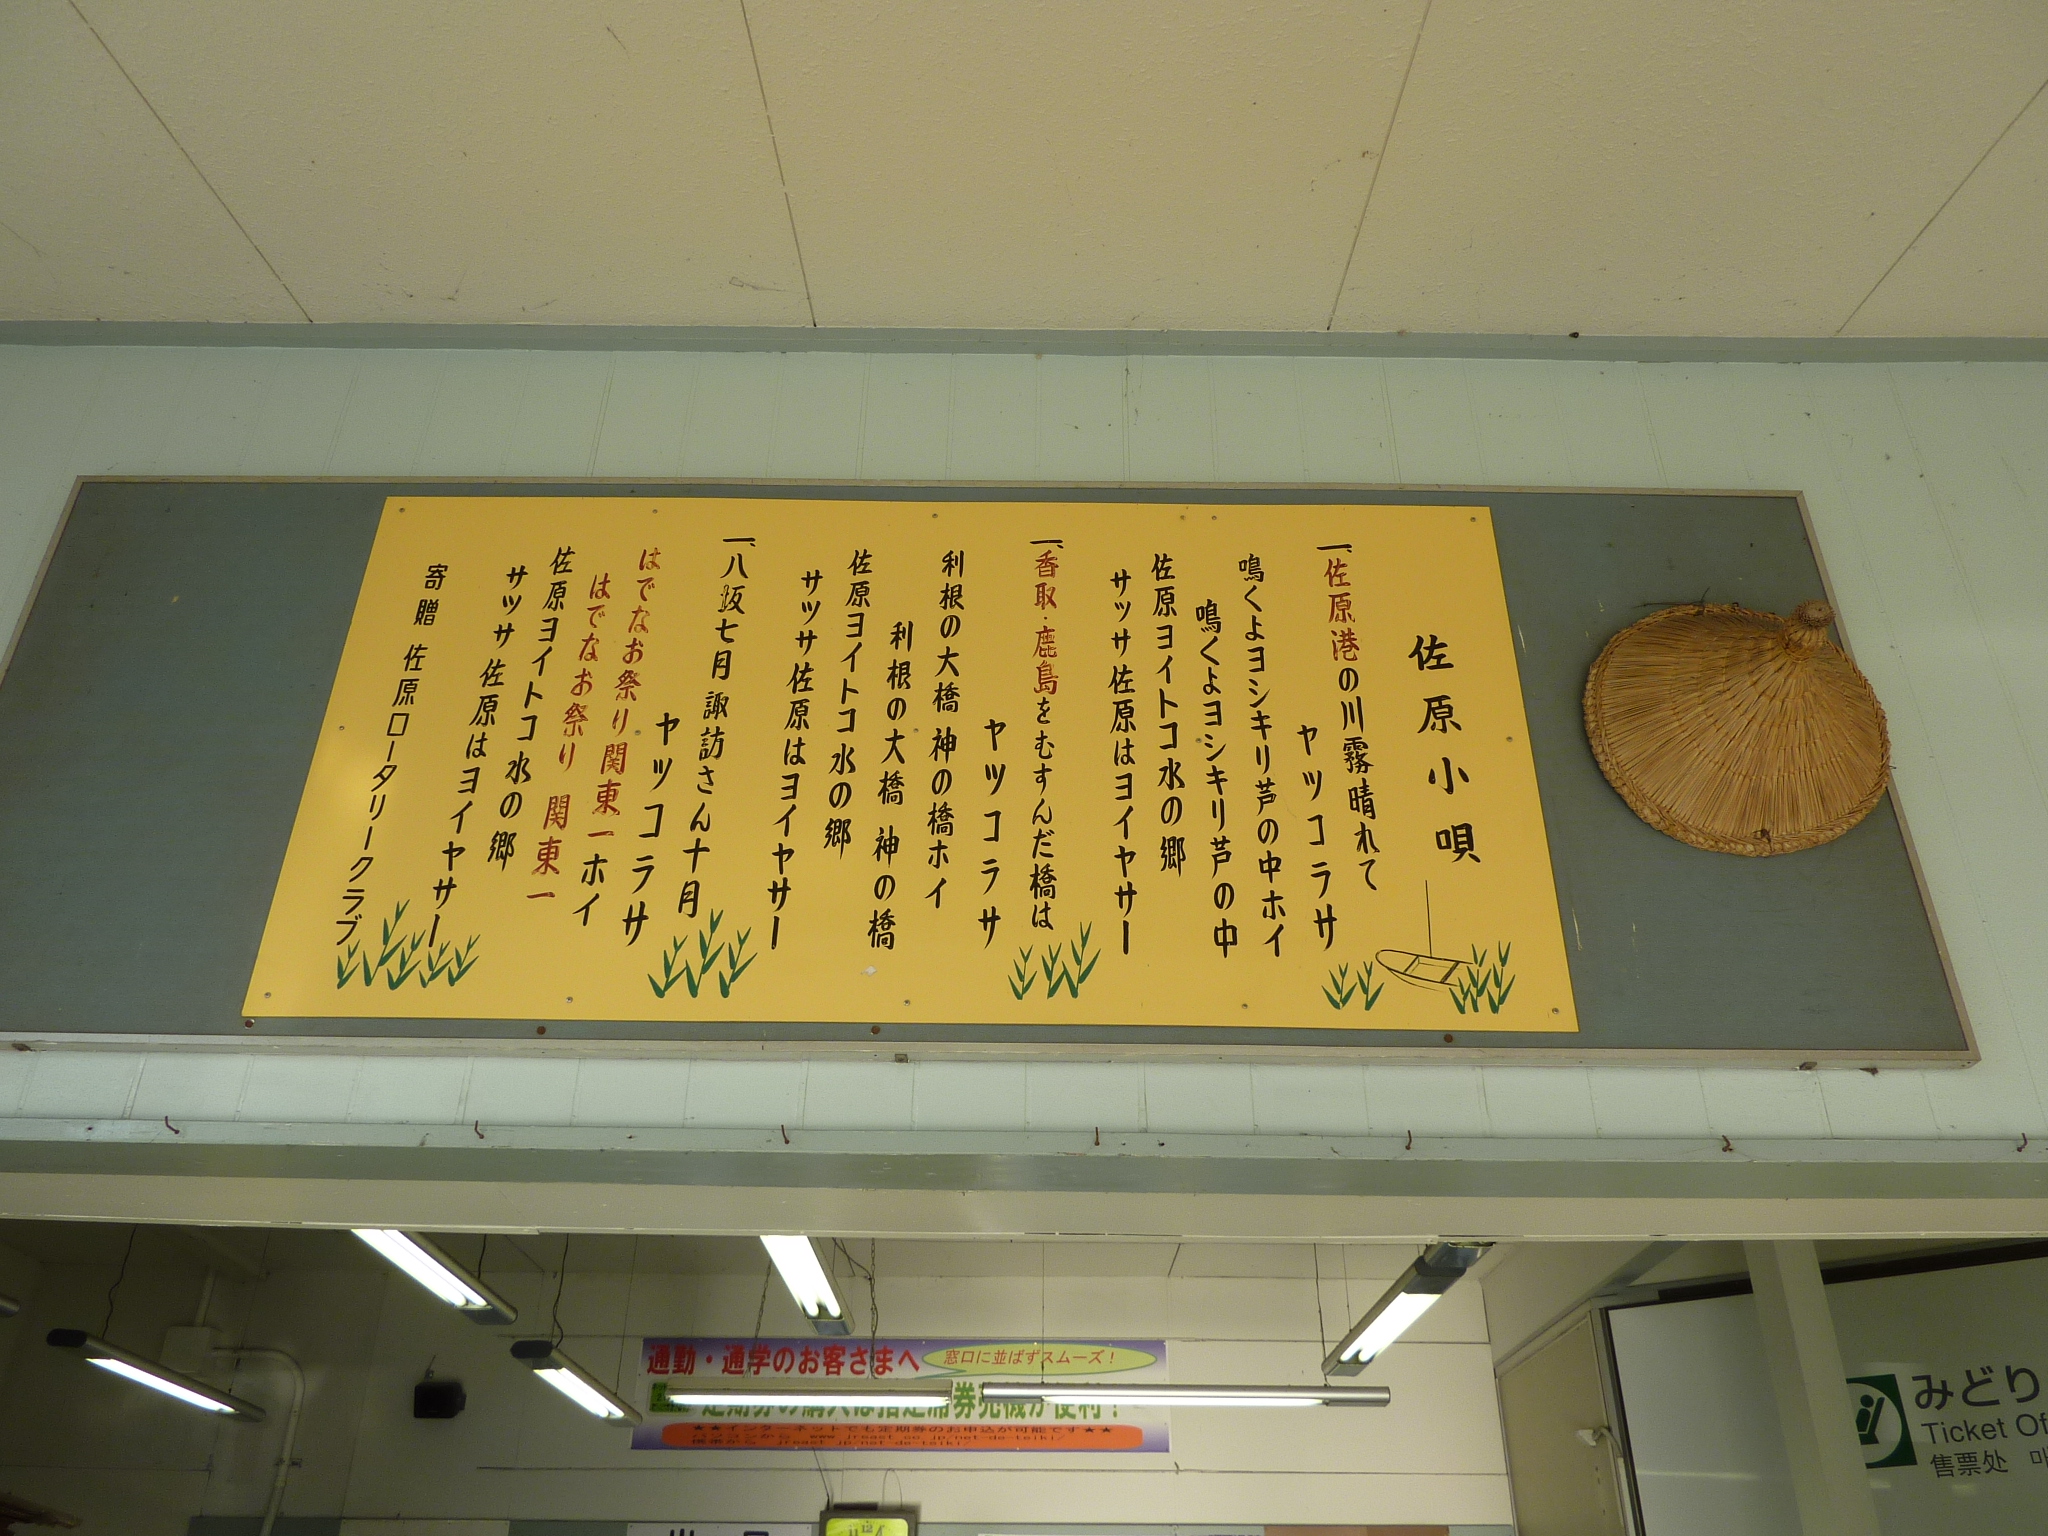 佐原小唄
一、佐原港の川霧晴れて
ヤッコラサ
鳴くよヨシキリ芦の中ホイ
鳴くよヨシキリ芦の中
佐原ヨイトコ水の郷
サッサ佐原はヨイヤサー
一、香取・鹿島をむすんだ橋は
ヤッコラサ
利根の大橋 神の橋ホイ
利根の大橋 神の橋
佐原ヨイトコ水の郷
サッサ佐原はヨイヤサー
一、八坂七月 諏訪さん十月
ヤッコラサ
はでなお祭り関東一ホイ
はでなお祭り 関東一
佐原ヨイトコ 水の郷
サッサ 佐原はヨイヤサー
寄贈 佐原ロータリークラブ
通勤・通学のお客さまへ
窓口に並ばずスムーズ！
定期券の購入は指定席券売機が便利！
★★インターネットでも定期券のお申込が可能です★★
パソコンから www.jreast.co.jp/net-de-teiki/
携帯から jreast.jp/net-de-teiki/
みどり
Ticket Of
售票处
12